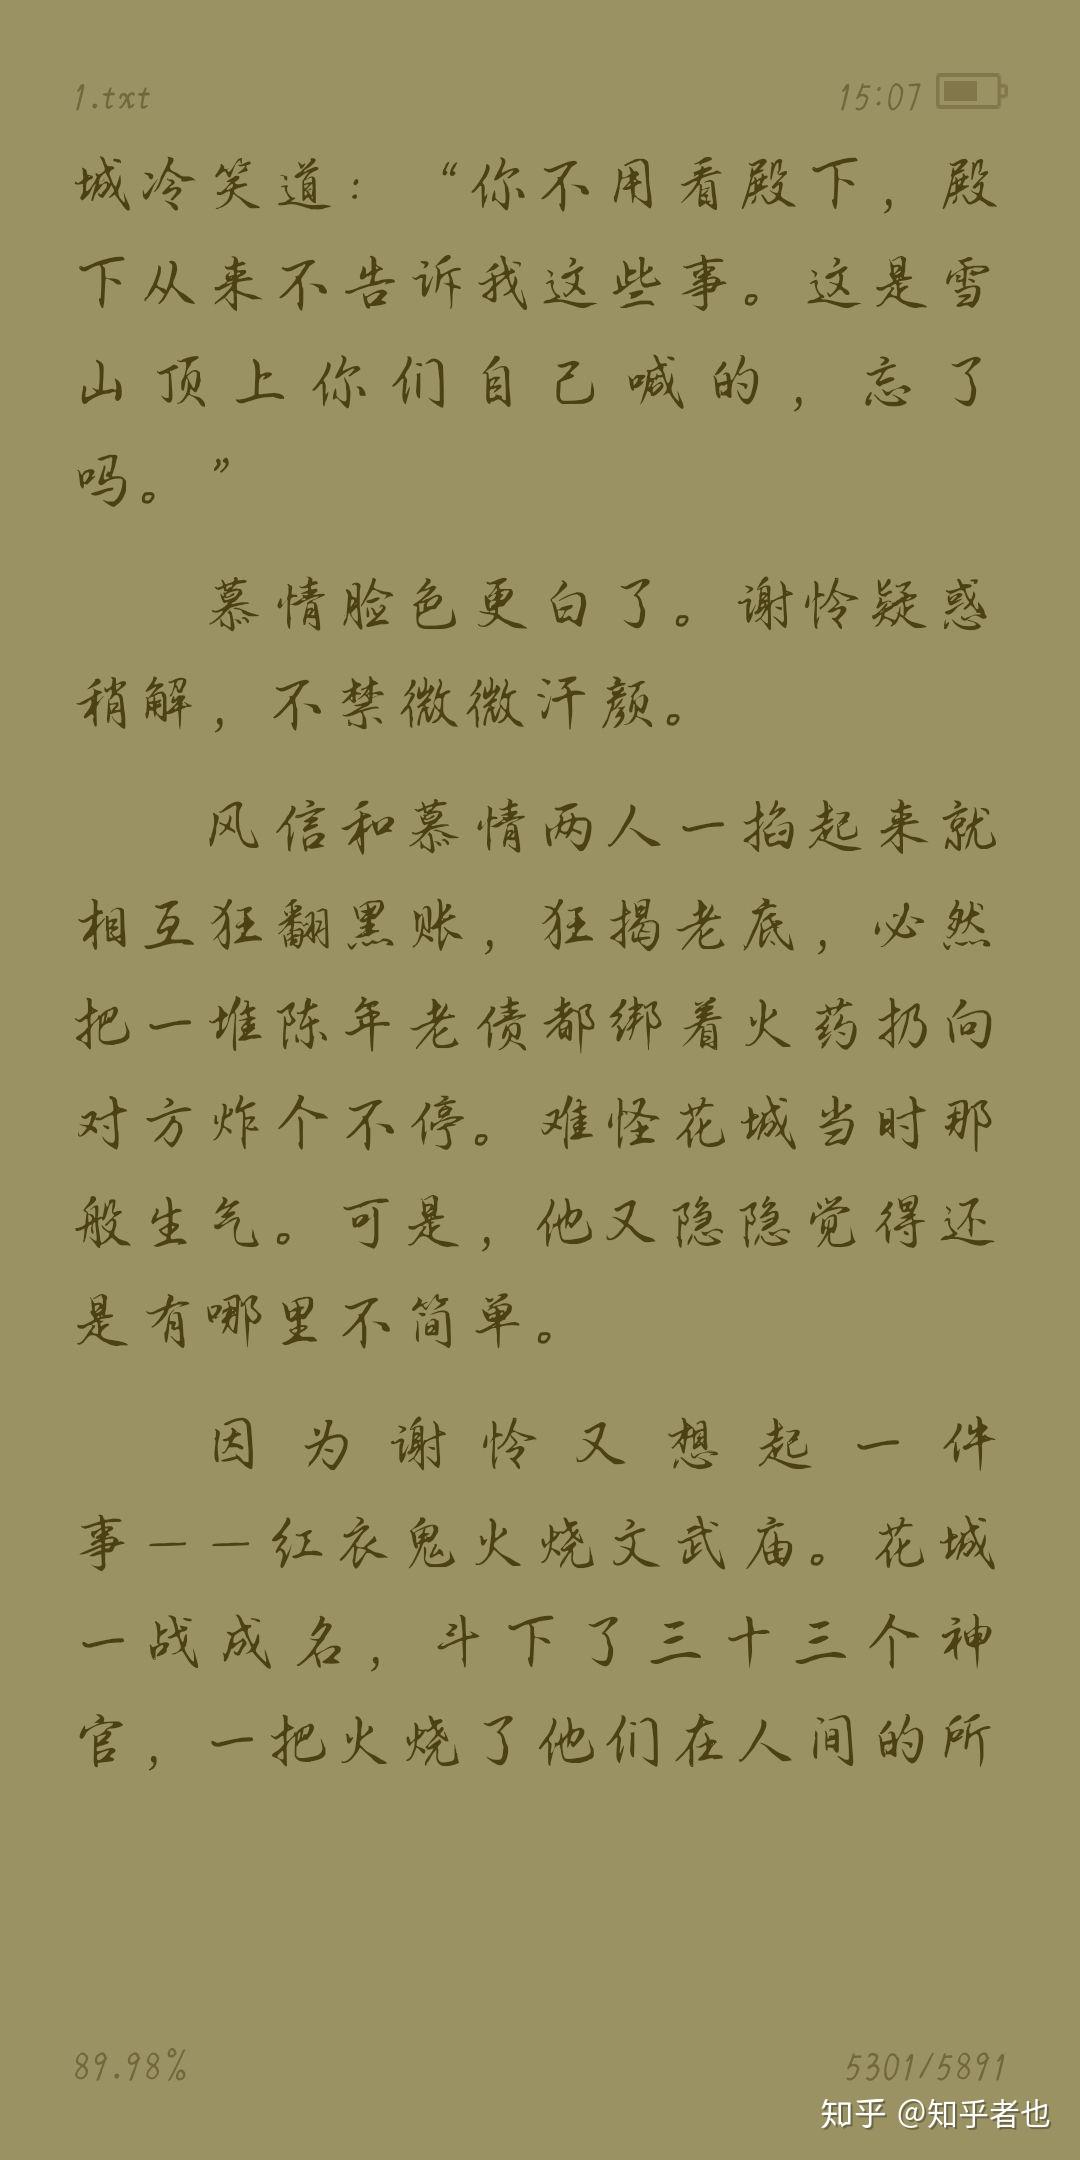 1.txt 15:07
城冷笑道：“你不用看殿下，殿
下从来不告诉我这些事。这是雪
山顶上你们自己喊的，忘了
吗。”
慕情脸色更白了。谢怜疑惑
稍解，不禁微微汗颜。
风信和慕情两人一掐起来就
相互狂翻黑账，狂揭老底，必然
把一堆陈年老债都绑着火药扔向
对方炸个不停。难怪花城当时那
般生气。可是，他又隐隐觉得还
是有哪里不简单。
因为谢怜又想起一件
事——红衣鬼火烧文武庙。花城
一战成名，斗下了三十三个神
官，一把火烧了他们在人间的所
89.98% 5301/5891
知乎 @知乎者也